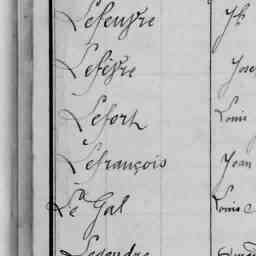 Lefeuvre Jh
Lefèvre
Lefort Louis
Lefrançois Jean
Le Gal Louis
Legendre